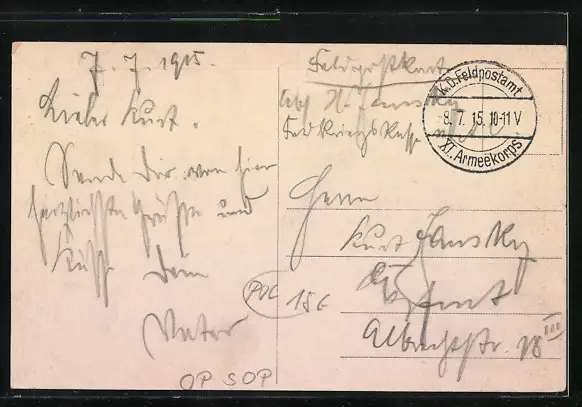 7. 7. 1915.
Lieber Kurt.
Sende Dir von hier
herzlichste Grüsse und
Küsse Dein
Vater
Feldpostkarte
Abs. H. Jansky
Feldkriegskasse
K.D.Feldpostamt
8. 7. 15. 10-11 V
XI. Armeekorps
Herrn
Kurt Jansky
Erfurt
Albrechtstr. 18 III
PVC
15€
OP SOP